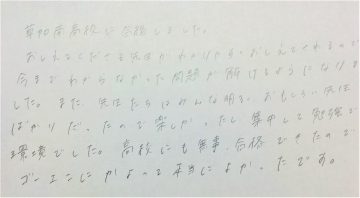 草加南高校に合格しました。
おしえてくださる先生がわかりやすくおしえてくれるので
今までわからなかった問題が解けるようになりま
した。また、先生たちはみんな明るく、おもしろい先生
ばかりだったので楽しかったし、集中して勉強で
環境でした。高校にも無事、合格できたので
ゴーエンにかよって本当によかったです。